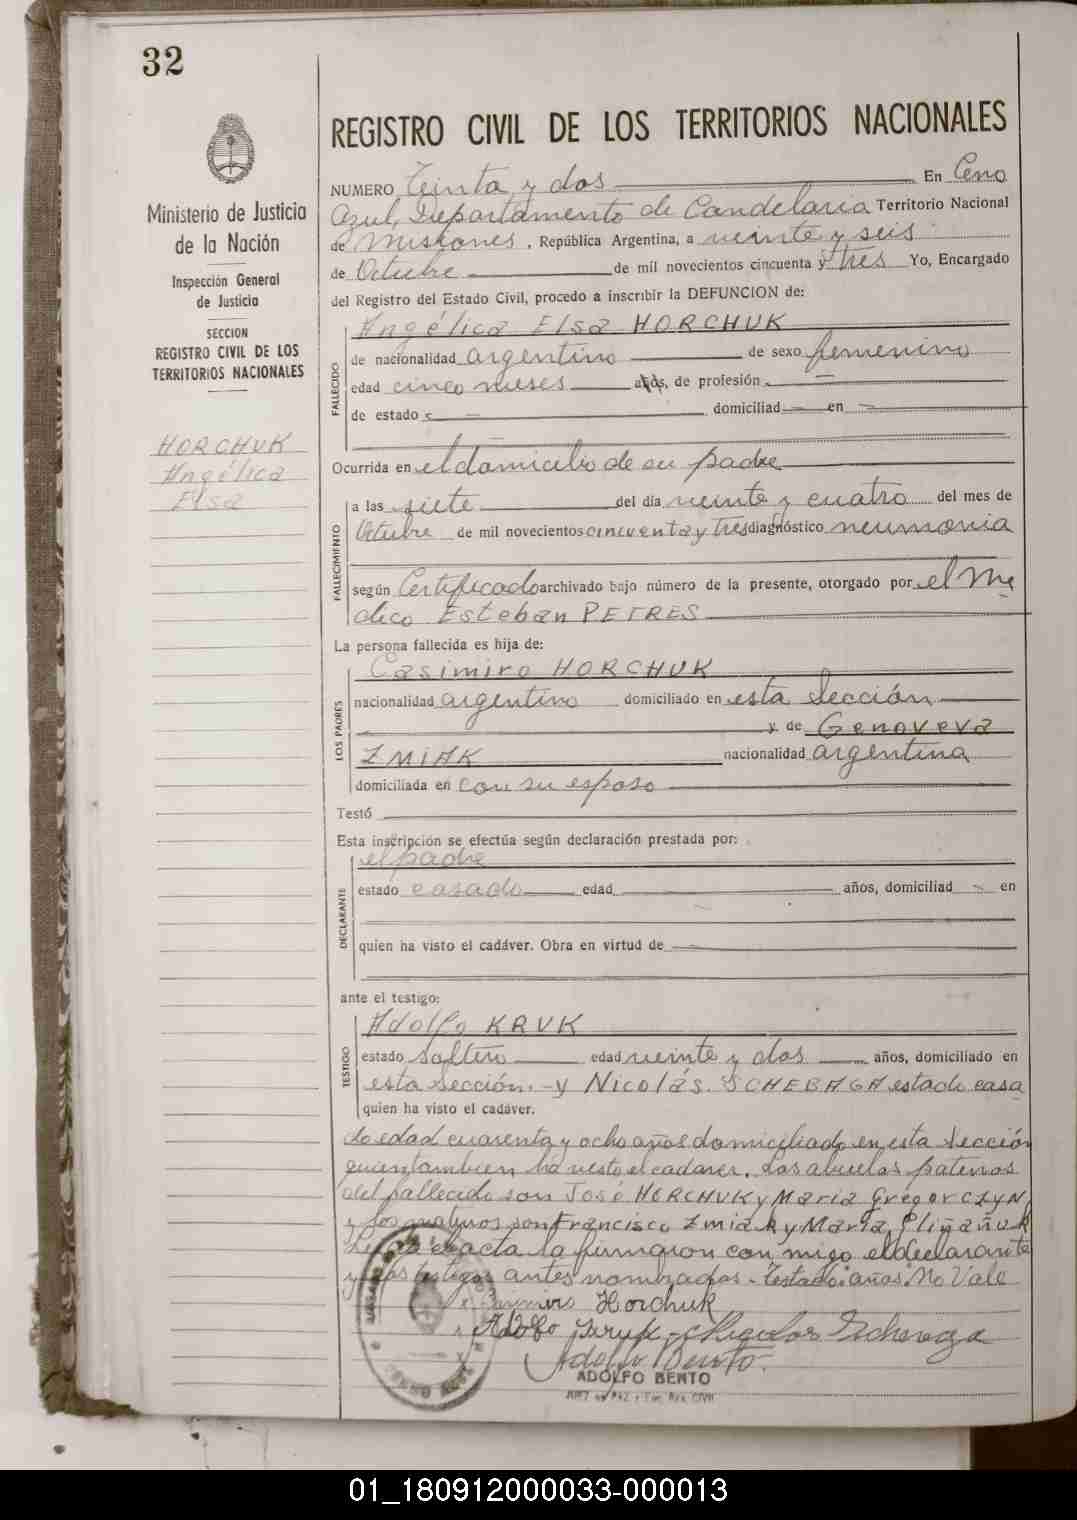 32
REGISTRO CIVIL DE LOS TERRITORIOS NACIONALES
Ministerio de Justicia
de la Nación
Inspección General
de Justicia
SECCION
REGISTRO CIVIL DE LOS
TERRITORIOS NACIONALES
HORCHUK
Angélica
Elsa
NUMERO Treinta y dos En Cerro
Azul, Departamento de Candelaria Territorio Nacional
de Misiones, República Argentina, a veinte y seis
de Octubre de mil novecientos cincuenta y tres Yo, Encargado
del Registro del Estado Civil, procedo a inscribir la DEFUNCION de:
FALLECIDO
Angélica Elsa HORCHUK
de nacionalidad argentino de sexo femenino
edad cinco meses años, de profesión —
de estado — domiciliad — en —
Ocurrida en el domicilio de su padre
FALLECIMIENTO
a las siete del día veinte y cuatro del mes de
Octubre de mil novecientos cincuenta y tres diagnóstico neumonia
según Certificado archivado bajo número de la presente, otorgado por el Me
dico Esteban PETRES
La persona fallecida es hija de:
LOS PADRES
Casimiro HORCHUK
nacionalidad argentino domiciliado en esta Sección
y de Genoveva
ZMIAK nacionalidad argentina
domiciliada en con su esposo
Testó
Esta inscripción se efectúa según declaración prestada por:
DECLARANTE
el padre
estado casado edad años, domiciliad — en
quien ha visto el cadáver. Obra en virtud de
ante el testigo:
TESTIGO
Adolfo KRUK
estado soltero edad veinte y dos años, domiciliado en
esta Sección.-y Nicolás SCHEBAGA estado casa
quien ha visto el cadáver.
do edad cuarenta y ocho años domiciliado en esta Sección
quien tambien ha visto el cadaver. Los abuelos paternos
del fallecido son José HORCHUK y Maria GregorCZYN
y los maternos son Francisco Zmiak y Maria
Leida el acta la firmaron con migo el declarante
y los testigos antes nombrados.- Testado: años: No Vale
Casimiro Horchuk
Adolfo Kruk
Adolfo Bento.
ADOLFO BENTO
JUEZ de PAZ y Enc. Reg. CIVIL
JUZGADO DE PAZ
CERRO AZUL
01_180912000033-000013